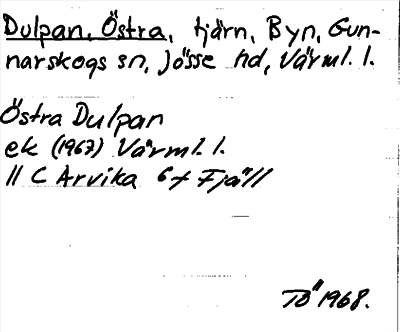 Dulpan, Östra, tjärn, Byn, Gun-
narskogs sn, Jösse hd, Värml. l.
Östra Dulpan
ek (1967) Värml. l.
11 C Arvika 6 f Fjäll
TÖ 1968.